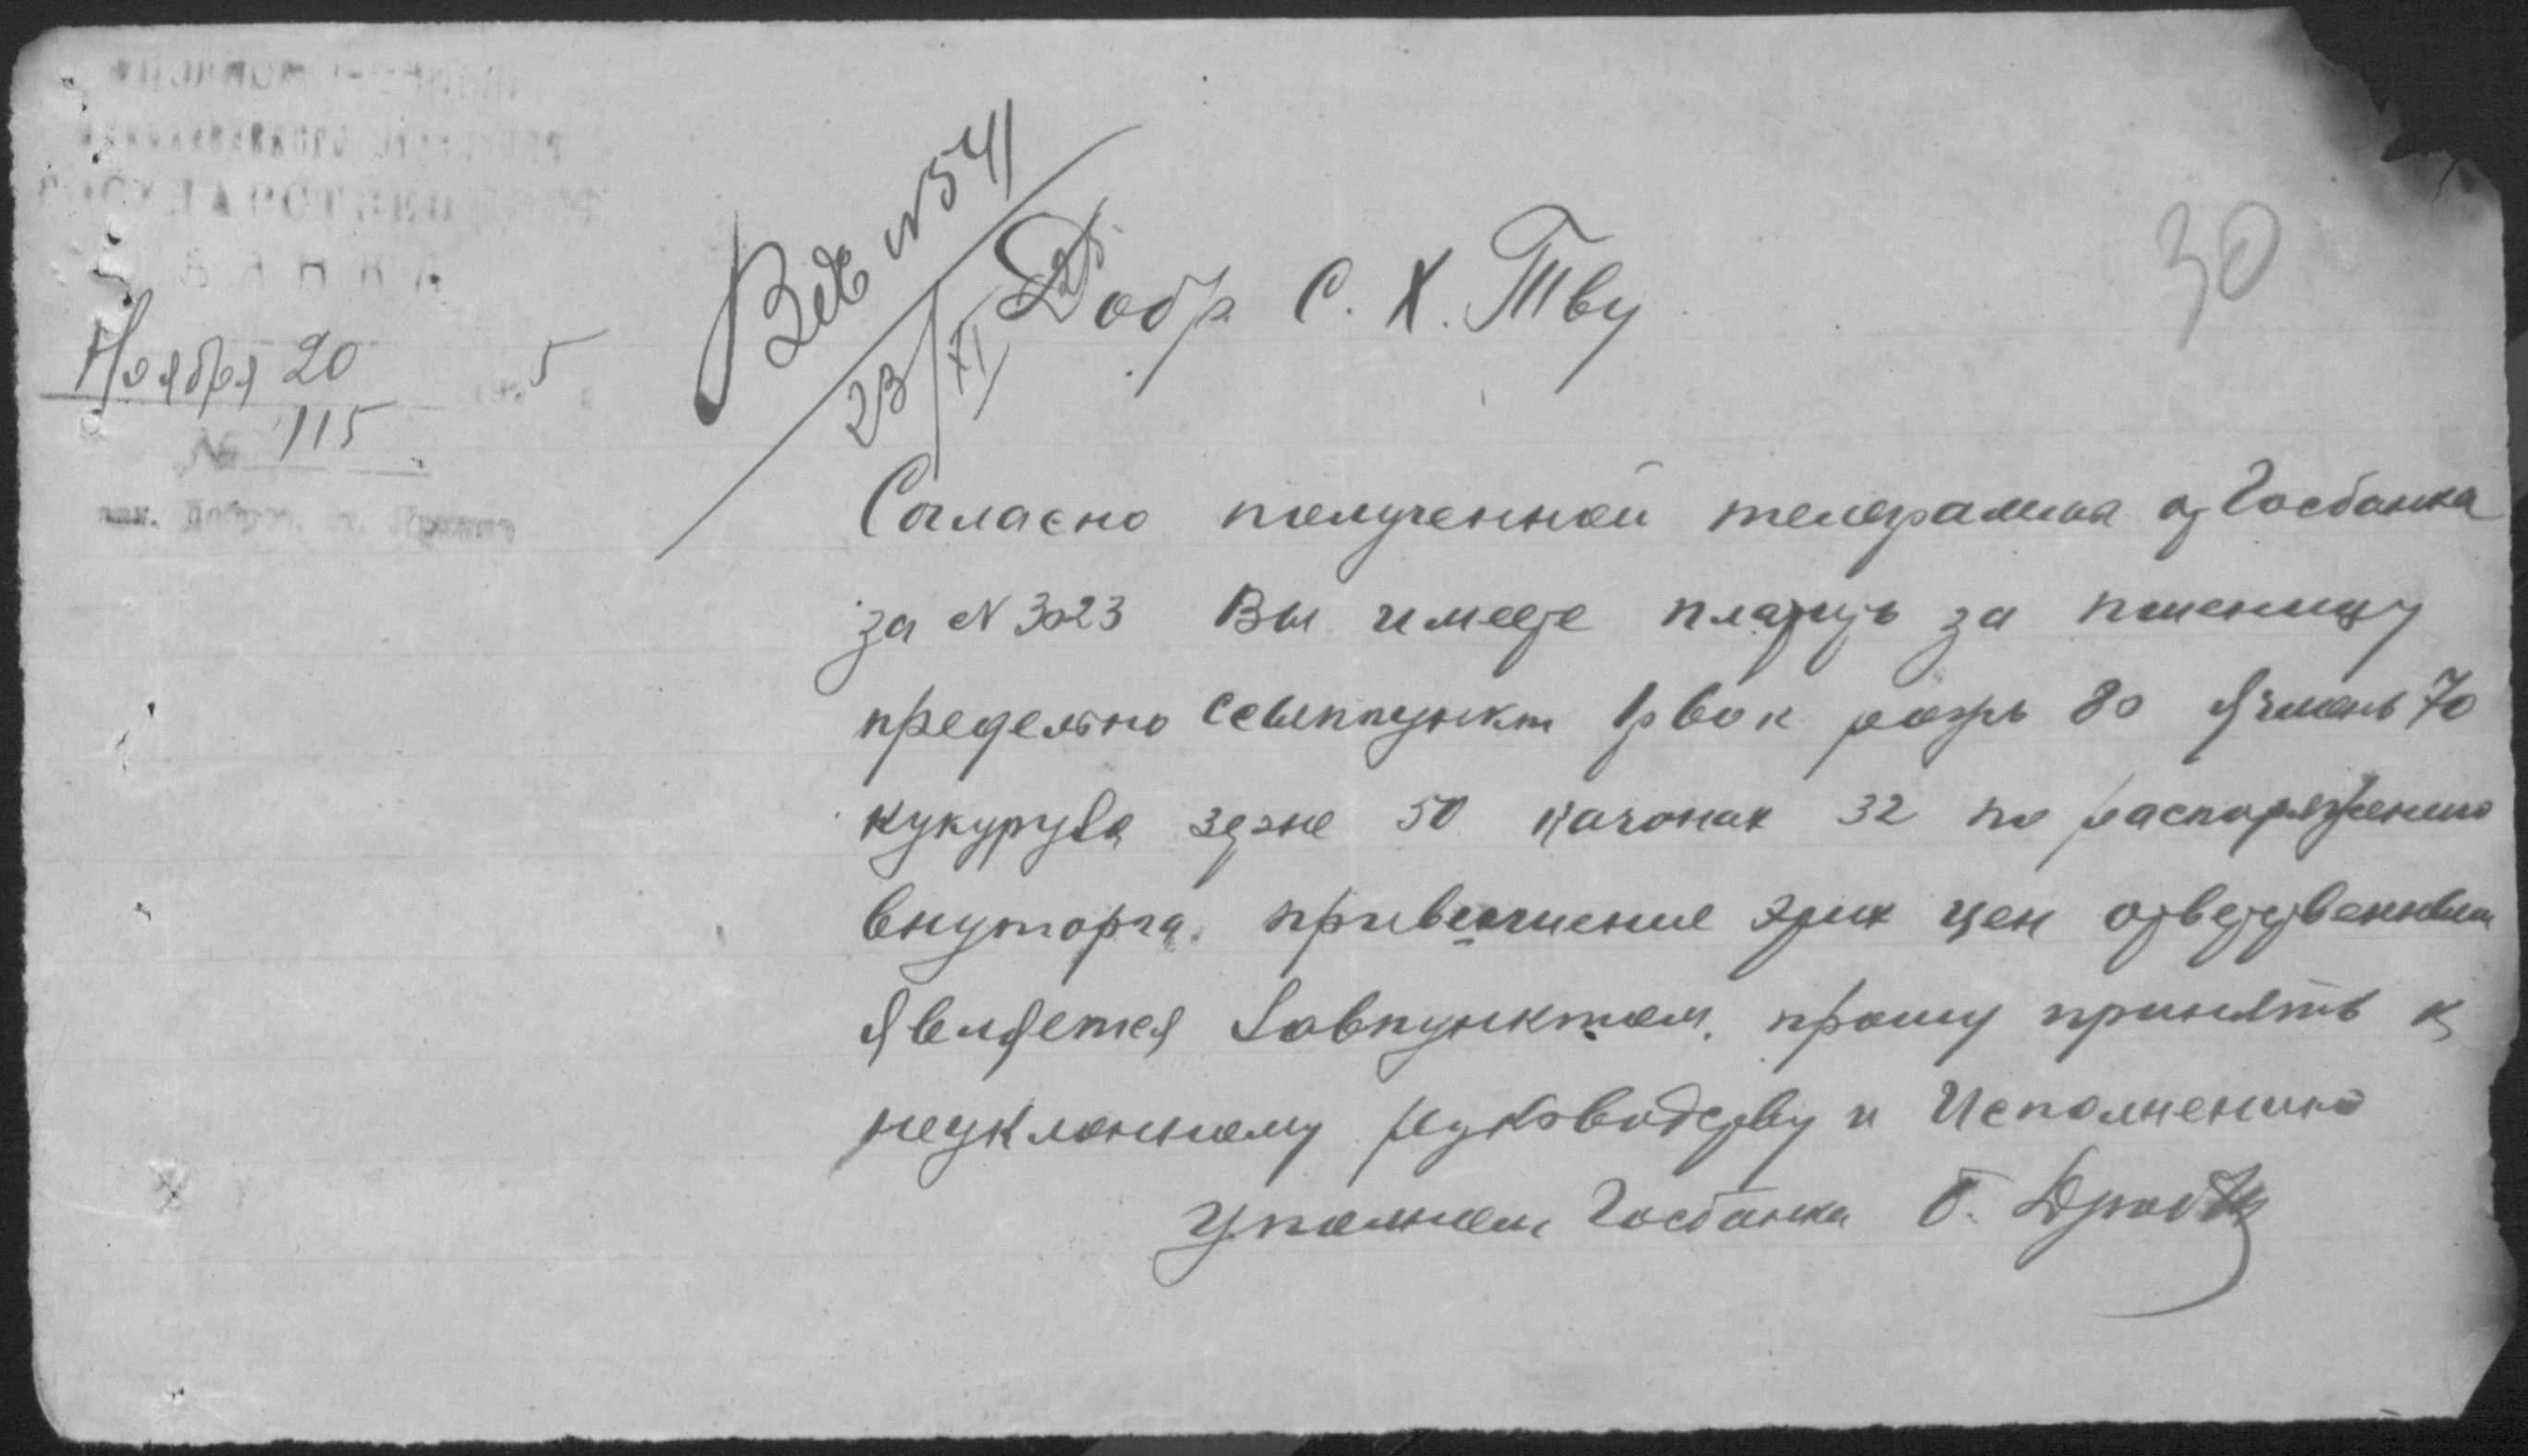 Ноября 20 5
№ 115
Вед №541
23/XI 25
30
Добр С. Х. Тву
Согласно полученной телеграмма от Госбанка
за № 3023 Вы имеете платить за пшеницу
предельно ссыппункт 1р 80 к рожь 80 Ячмень 70
кукуруза зерне 50 качонах 32 по распоряжению
внуторга. привешение этих цен ответственным
Является Завпунктом. прошу принять к
неуклонному руководству и Исполнению
Уполном Госбанка